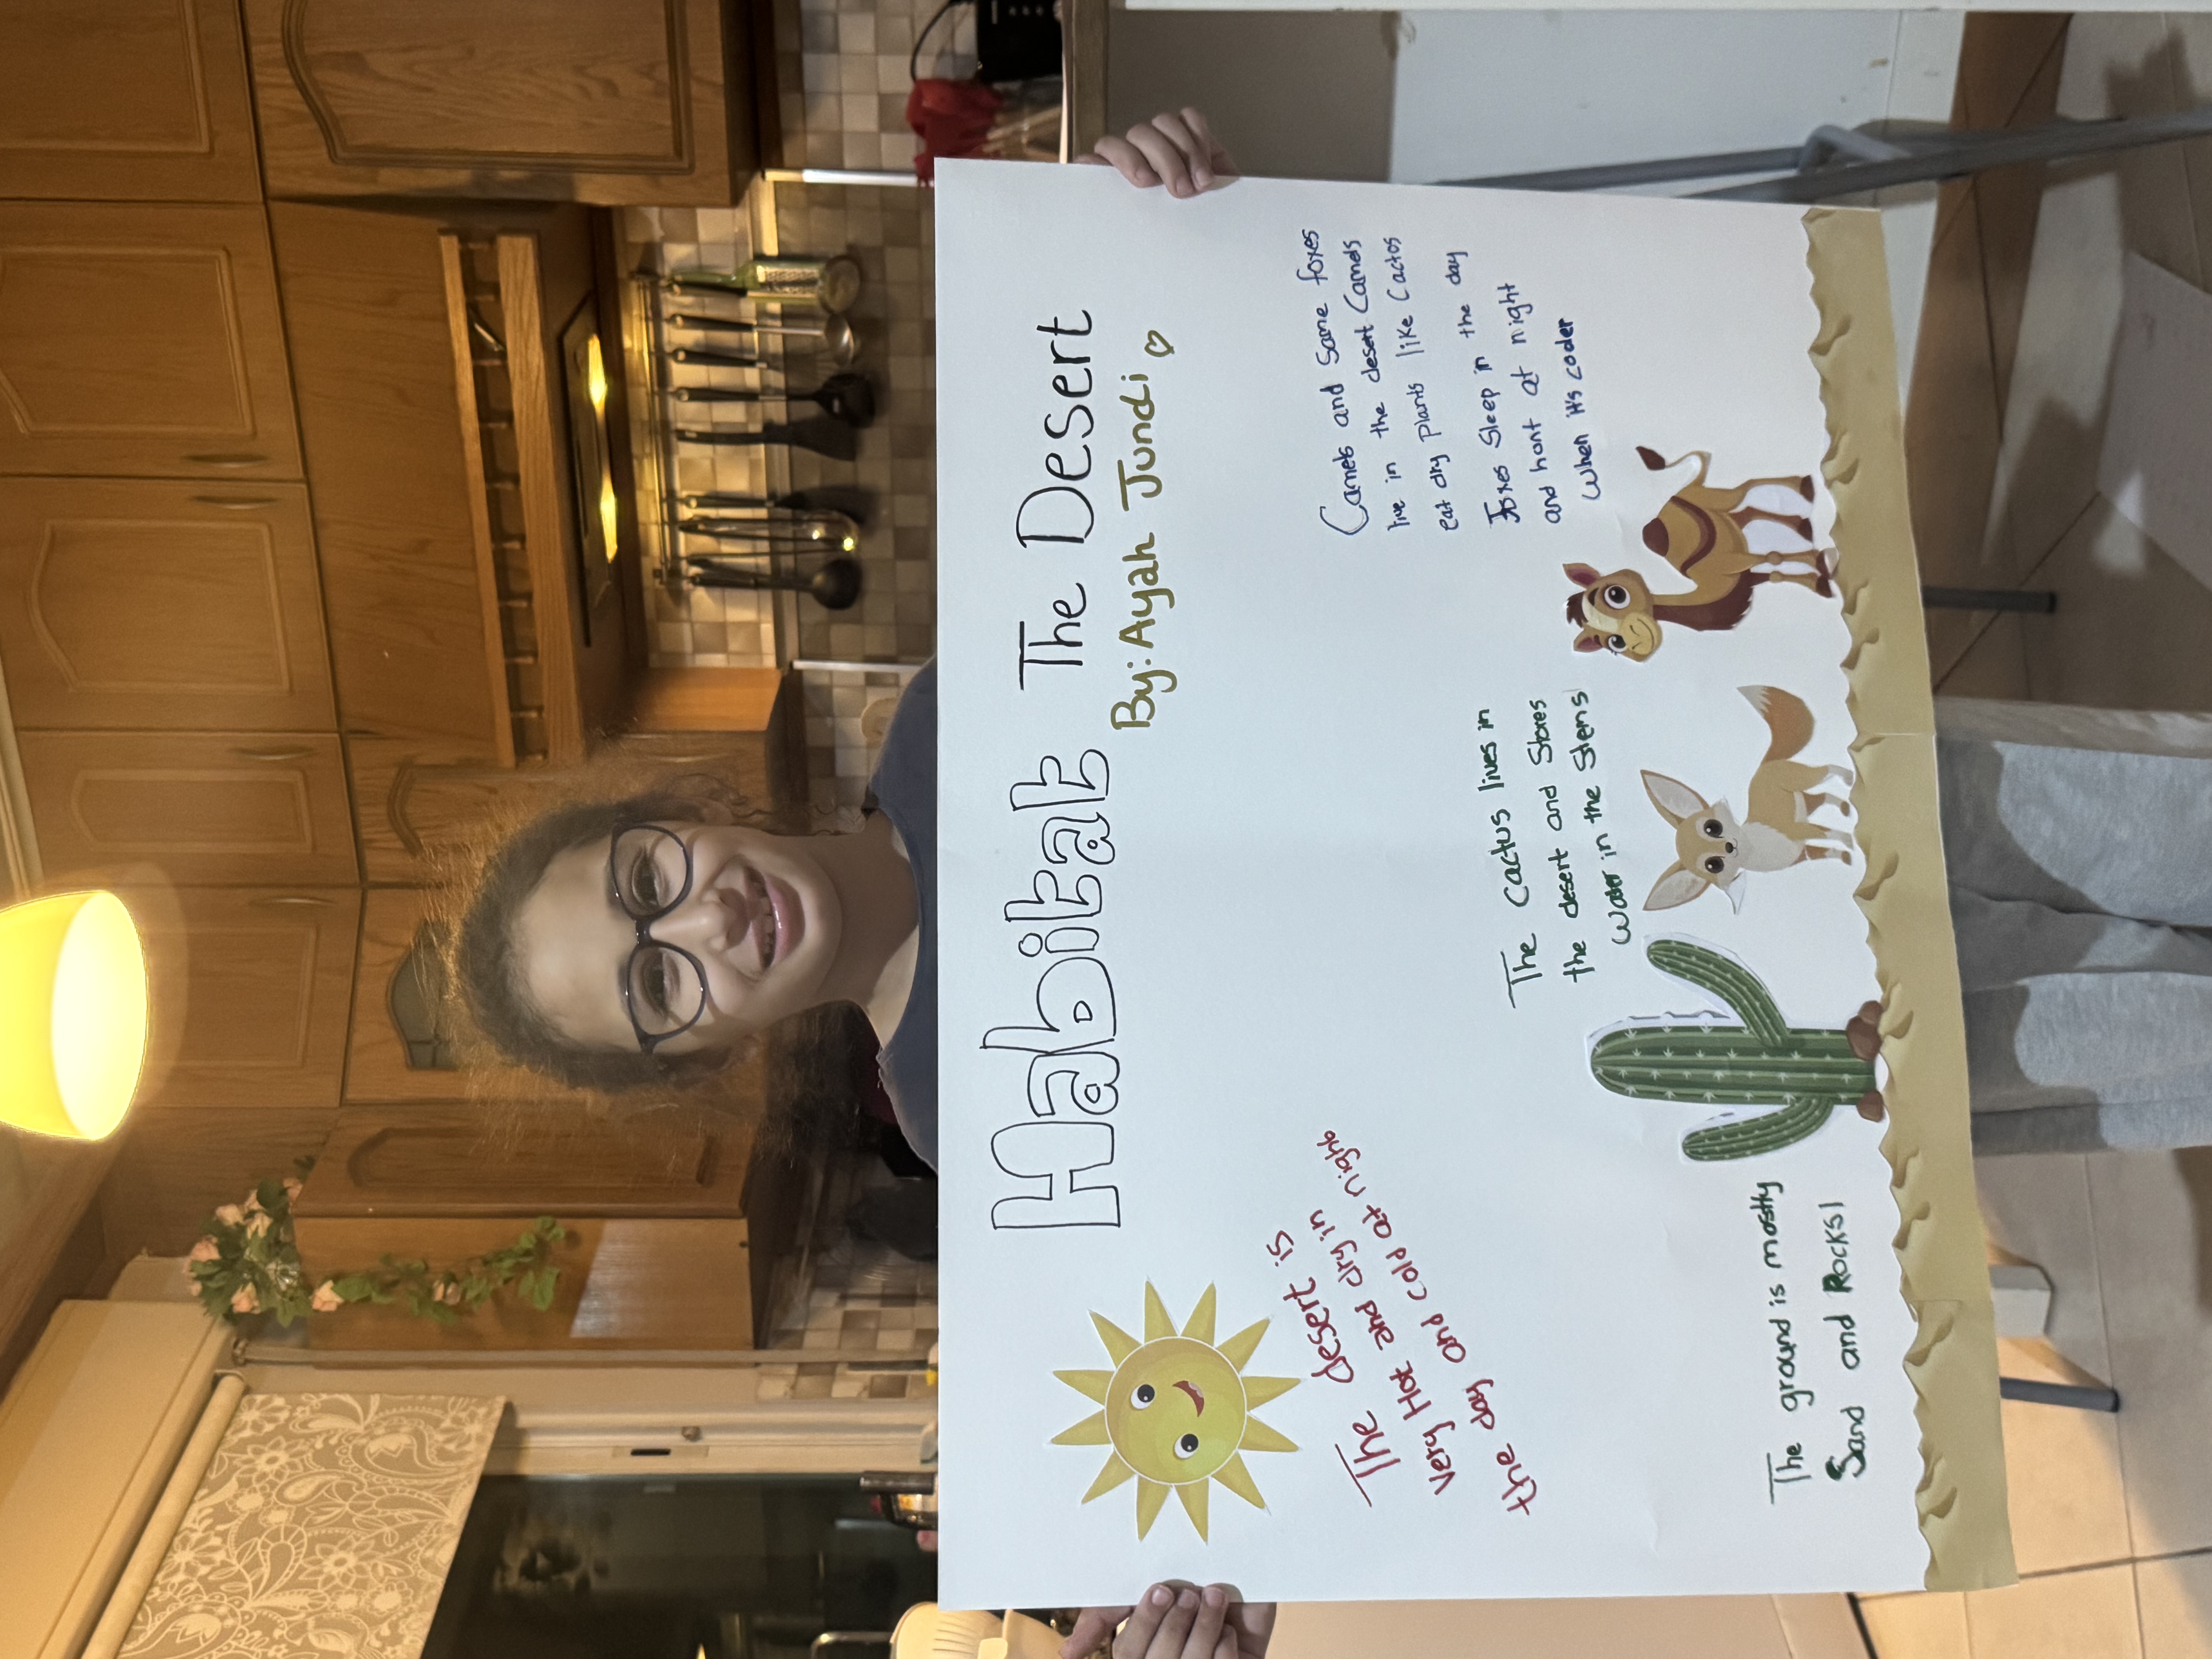 Habitat The Desert
By: Ayah Jundi
The desert is
very Hot and dry in
the day and cold at night
Camels and Some foxes
live in the desert Camels
eat dry plants like Cactos
Foxes Sleep in the day
and hont at night
When it's coder
The cactus lives in
the desert and Stores
Water in the Stems
The ground is mostly
Sand and Rocks!